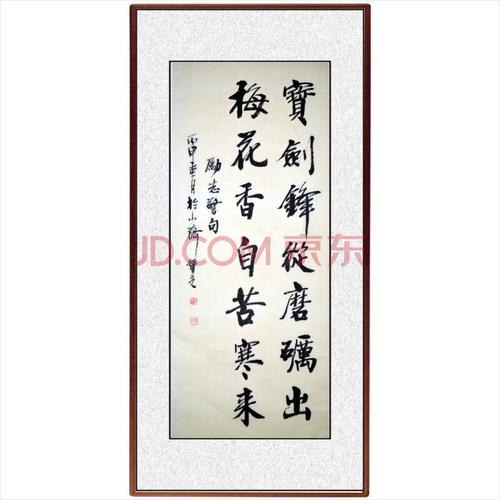 寶劍鋒從磨礪出
梅花香自苦寒來
勵志警句
丙申
月於小
JD.COM 京东